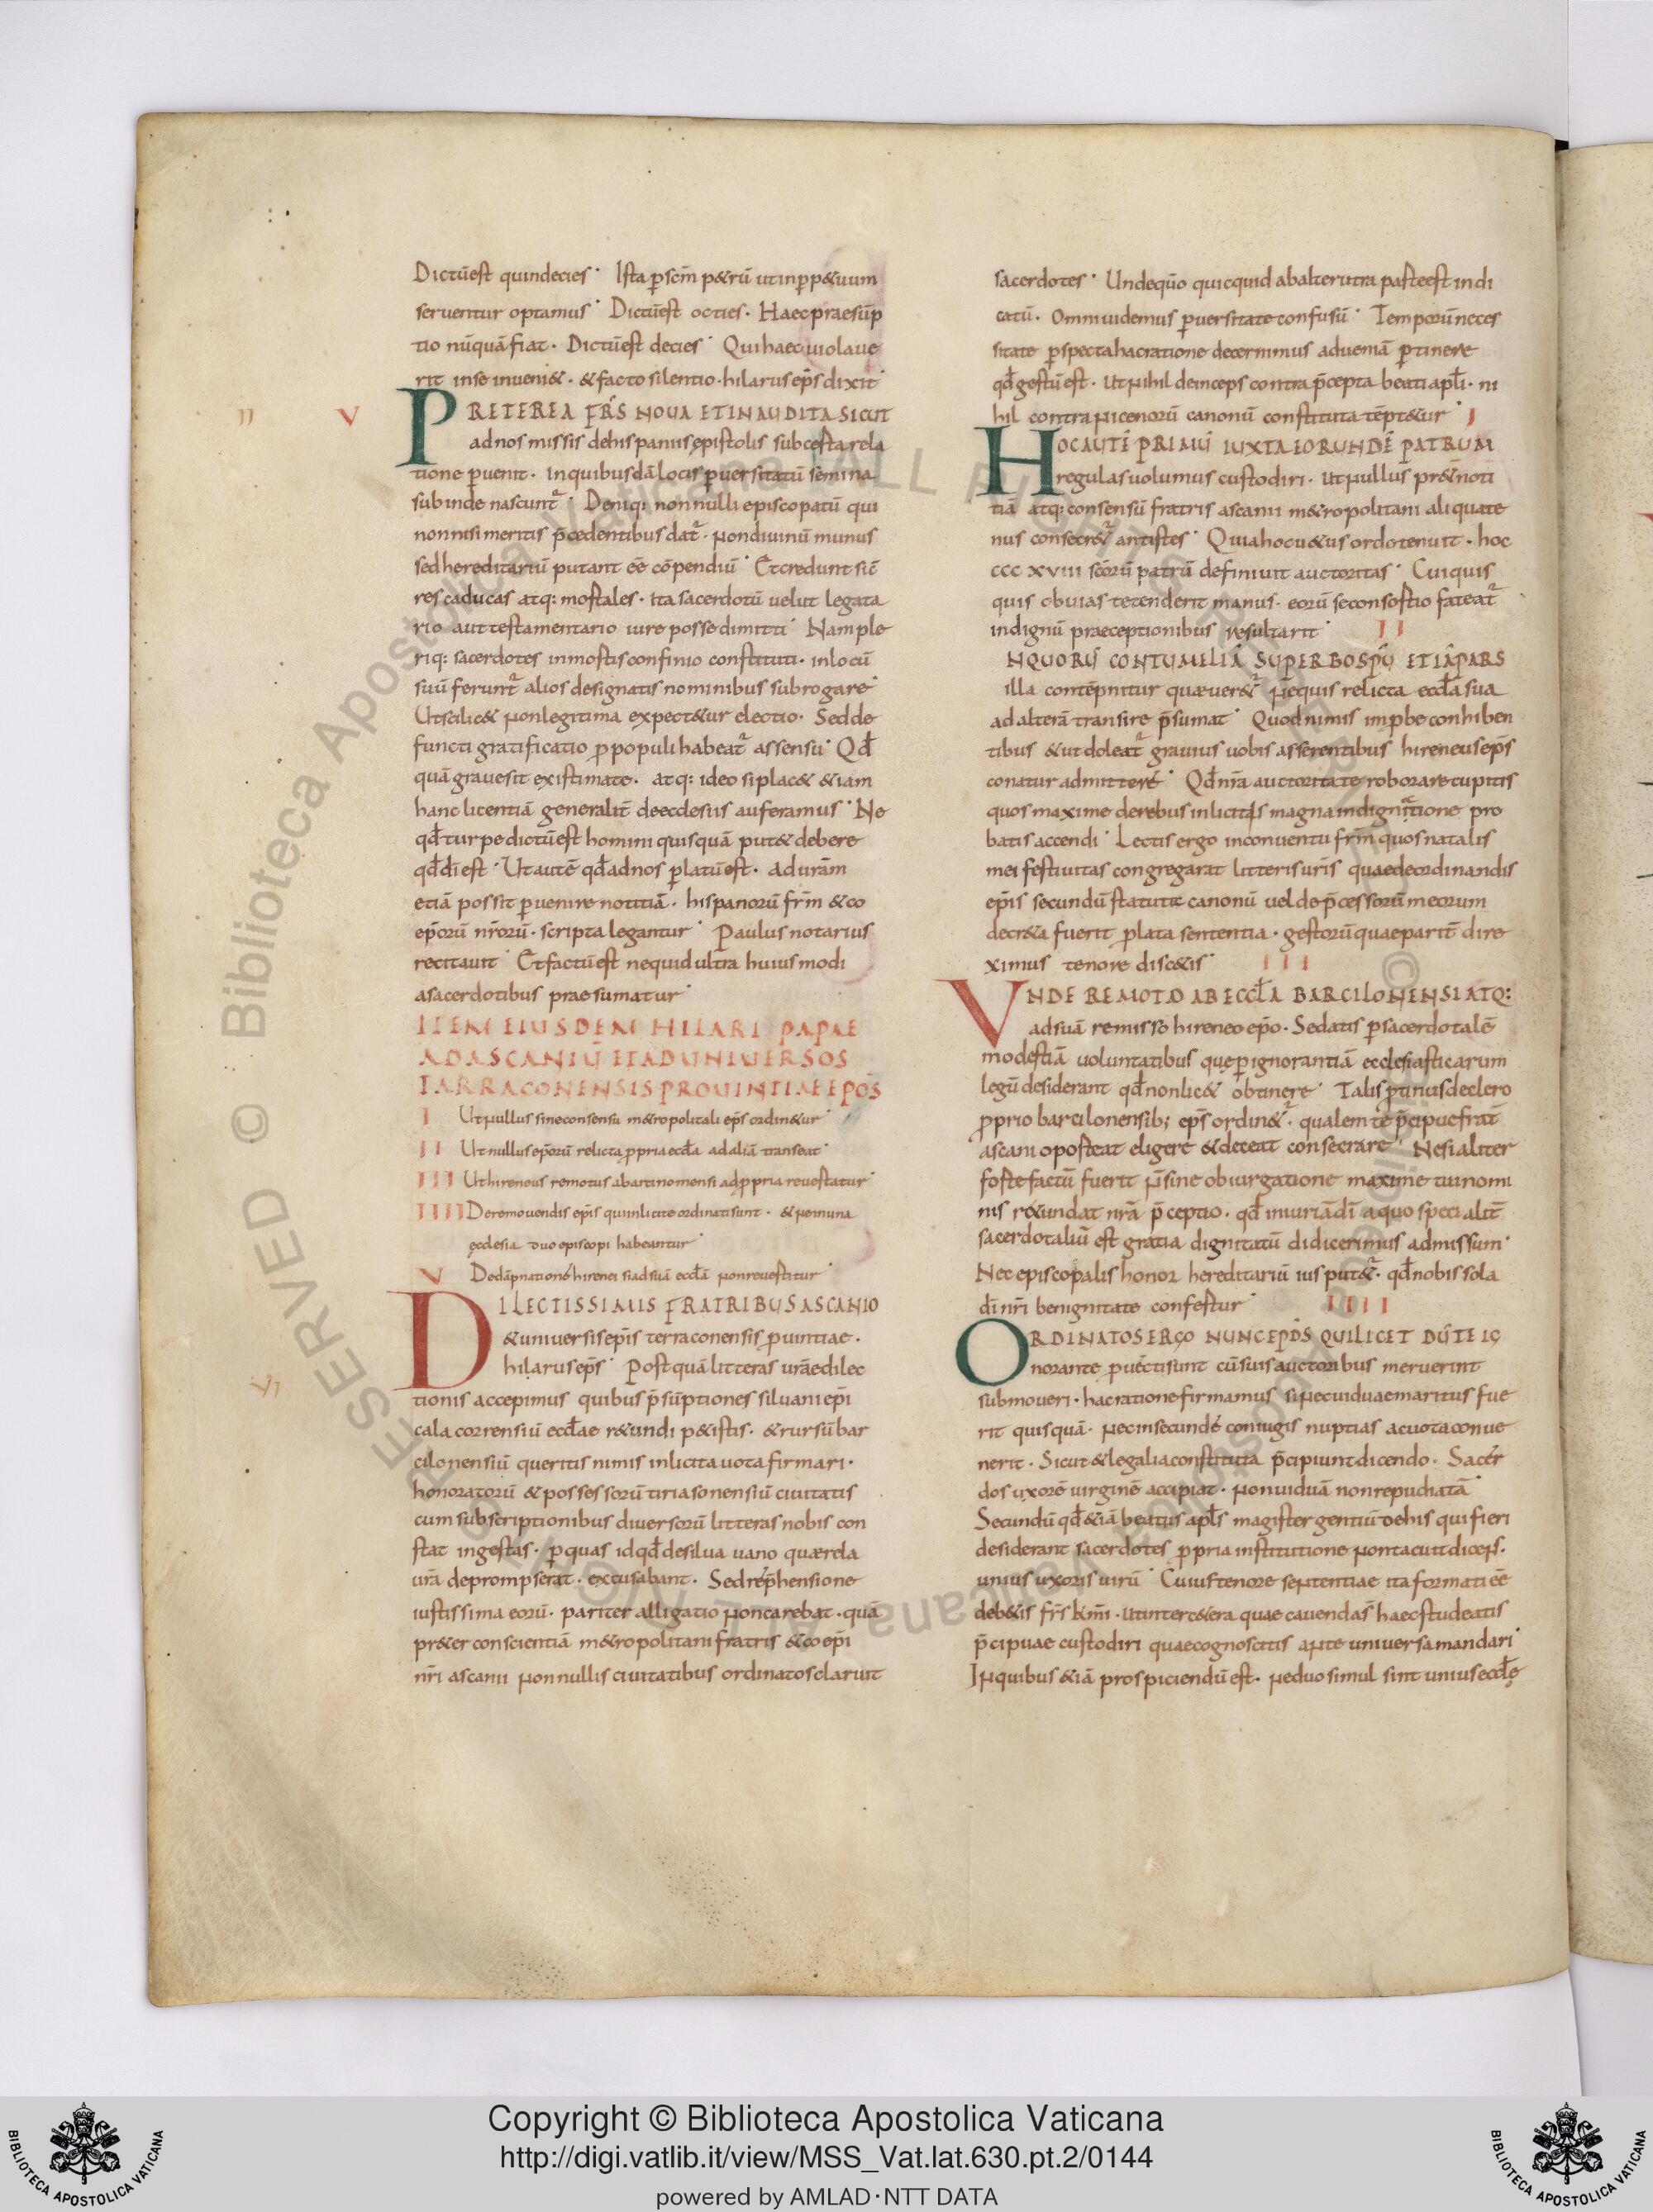 Dictūest quindecies· Ista ꝑscm̄ p&rū ut inꝑp&uum
seruentur optamus· Dictūest octies· Haec praesūp
tio nūquā fiat· Dictūest decies· Qui haec uiolaue
rit inse inueni&· & facto silentio· hilarus ep̄s dixit·
V
PRETEREA FR̄S NOUA ET INAUDITA SICUT
ad nos missis dehispaniis epistolis subcesta rela
tione ꝑuenit· in quibusdā locis ꝑuersitatū semina
subinde nascunt̄· Deniq: nonnulli episcopatū qui
non nisi meritis p̄cedentibus dat̄· Non diuinū munus
sed hereditariū putant ēē cōpendiū· Et credunt sic̄
res caducas atq: mortales· ita sacerdotū uelut legata
rio aut testamentario iure posse dimitti· Nam ple
riq: sacerdotes in mortis confinio constituti· inlocū
suū ferunt̄ alios designatis nominibus subrogare·
Ut scilic& Non legitima expect&ur electio· Sed de
functi gratificatio ꝓ populi habeat̄ assensu· Qd̄
quā graue sit existimate· atq: ideo si plac& &iam
hanc licentiā generalit̄ de ecclesiis auferamus· Ne
qd̄ turpe dictūest homini quisquā put& debere
qd̄ dī est· Ut autē qd̄ ad nos ꝑlatūest· ad urām
etiā possit ꝑuenire notitiā· hispanorū fr̄m & co
ep̄orū nr̄orū· scripta legantur· Paulus notarius
recitauit· Et factūest nequid ultra huiusmodi
a sacerdotibus praesumatur·
ITEM EIUSDEM HILARI PAPAE
AD ASCANIŪ ET AD UNIUERSOS
TARRACONENSIS PROUINTIAE EPŌS
I Ut Nullus sine consensu m&ropolitali ep̄s ordin&ur·
II Ut nullus ep̄orū relicta ꝓpria eccl̄a ad aliā transeat·
III Ut hireneus remotus abarcinomensi ad ꝓpria reuertatur·
IIII De remouendis ep̄is qui inlicite ordinati sunt· & Ne in una
ęcclesia duo episcopi habeantur·
V De dāpnatione hirenei si ad suā eccl̄ā Non reuertitur·
DILECTISSIMIS FRATRIBUS ASCANIO
& uniuersis ep̄is terraconensis ꝓuintiae·
hilarus ep̄s· Postquā litteras urāe dilec
VI
tionis accepimus quibus p̄sūptiones siluani ep̄i
calacorrensiū eccl̄ae r&undi p&istis· & rursū bar
cilonensiū queritis nimis inlicita uota firmari·
honoratorū & possessorū tiriasonensiū ciuitatis
cum subscriptionibus diuersorū litteras nobis con
stat ingestas· ꝑ quas id qd̄ de silua uano quaerela
urā deprompserat· excusabant· Sed rep̄hensione
iustissima eorū· pariter alligatio Non carebat· quā
pr&er conscientiā m&ropolitani fratris & coep̄i
nr̄i ascanii Non nullis ciuitatibus ordinatos claruit
sacerdotes· Unde q̄uo quicquid ab alterutra parte est indi
catū· omni uidemus ꝑuersitate confusū· Temporū neces
sitate ꝑspecta hac ratione decernimus ad ueniā ꝑtinere
qd̄ gestū est· ut Nihil deinceps contra p̄cepta beati apl̄i· ni
hil contra Nicenorū canonū constituta tēpt&ur· I
HOC AUTĒ PRIMŪ IUXTA EORUNDĒ PATRUM
regulas uolumus custodiri· ut Nullus pr&noti
tiā atq: consensū fratris ascanii m&ropolitani aliquate
nus consecr&̄ antistes· Quia hoc u&us ordo tenuit· hoc
ccc xviii sc̄orū patrū definiuit auctoritas· Cui quis
quis obuias tetenderit manus· eorū se consortio fateat̄
indignū praeceptionibus resultarit· II
NQUORŪ CONTUMELIĀ SUPERBO SP̄Ū ETIĀ PARS
illa contēpnitur quae uer&̄ Nequis relicta eccl̄a sua
ad alterā transire p̄sumat· Quod nimis imꝓbe conhiben
tibus & ut doleat̄ grauius uobis asserentibus hireneus ep̄s
conatur admittere· Qd̄ nr̄a auctoritate roborare cupitis
quos maxime de rebus inlicitis magna indignatione pro
batis accendi· Lectis ergo in conuentu fr̄m quos natalis
mei festiuitas congregarat litteris uris̄ quae de ordinandis
ep̄is secundū statuta canonū uel de p̄cessorū meorum
decr&a fuerit ꝓlata sententia· gestorū quae parit̄ dire
ximus tenore disc&is· III
UNDE REMOTO AB ECCL̄A BARCILONENSI ATQ:
ad suā remisso hireneo ep̄o· Sedatis ꝑ sacerdotalē
modestiā uoluntatibus que ꝑ ignorantiā ecclesiasticarum
legū desiderant qd̄ non lic& obtinere· Talis ꝓtinus de clero
ꝓprio barcilonensib; ep̄s ordin&̄· qualem te p̄cipue frat̄
ascani oporteat eligere & deceat consecrare· Ne si aliter
forte factū fuerit N̄ sine obiurgatione maxime tui nomi
nis r&undat nr̄ā p̄ceptio· qd̄ iniuriā dī a quo specialit̄
sacerdotaliū est gratia dignitatū didicerimus admissum·
Nec episcopalis honor hereditariū ius put&̄· qd̄ nobis sola
dī nr̄i benignitate confertur· IIII
ORDINATOS ERGO NUNC EPŌS QUI LICET DŪ TE IG
norante ꝓuecti sunt cū suis auctoribus meruerint
submoueri· hac ratione firmamus si Nec uiduae maritus fue
rit quisquā· Nec in secunde coniugis nuptias ac uota conue
nerit· Sicut & legalia constituta p̄cipiunt dicendo· Sacer
dos uxorē uirginē accipiat· Non uiduā non repudiatā·
Secundū qd̄ &iā beatus apl̄s magister gentiū de his qui fieri
desiderant sacerdotes ꝓpria institutione Non tacuit diceNs·
unius uxoris uirū· Cuius tenore seNtentiae ita formati ēē
deb&is fr̄s km̄i· ut inter c&era quae cauenda s̄ haec studeatis
p̄cipuae custodiri quae cognoscitis aNte uniuersa mandari·
IN quibus &iā prospiciendū est· Ne duo simul sint unius eccl̄ę
Copyright © Biblioteca Apostolica Vaticana
http://digi.vatlib.it/view/MSS_Vat.lat.630.pt.2/0144
powered by AMLAD·NTT DATA
BIBLIOTECA APOSTOLICA VATICANA
BIBLIOTECA APOSTOLICA VATICANA